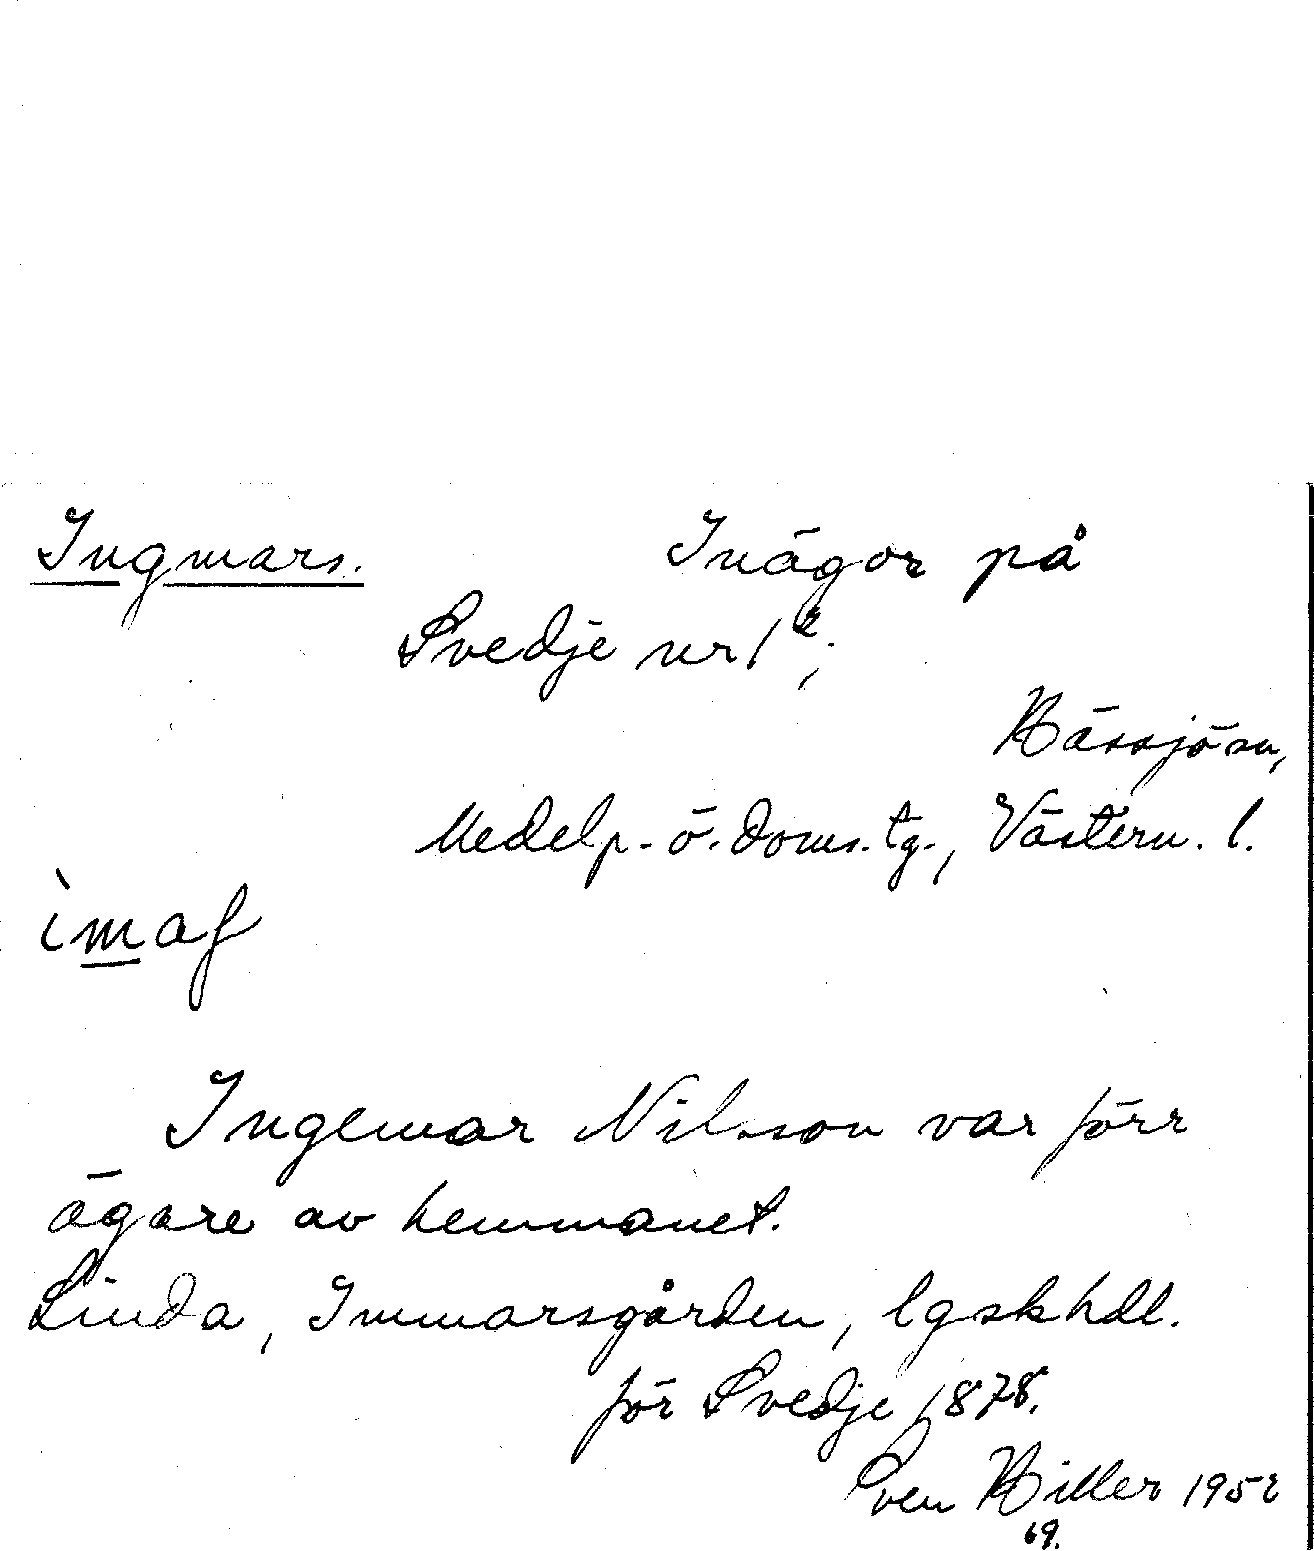 Ingmars. Inägor på
Svedje nr 1²;
Hässjö sn,
Medelp. ö. doms. tg., Västern. l.
ìmaʃ
Ingemar Nilsson var förr
ägare av hemmanet.
Linda, Immarsgården, lgskhdl.
för Svedje 1878.
Sven Hiller 1952
69.